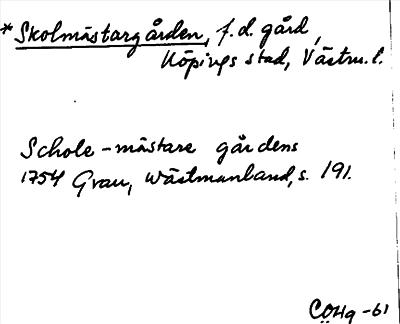 *Skolmästargården, f.d. gård,
Köpings stad, Västm.l.
Schole-mästare gårdens
1754 Grau, Wästmanland, s. 191.
CÖHg -61